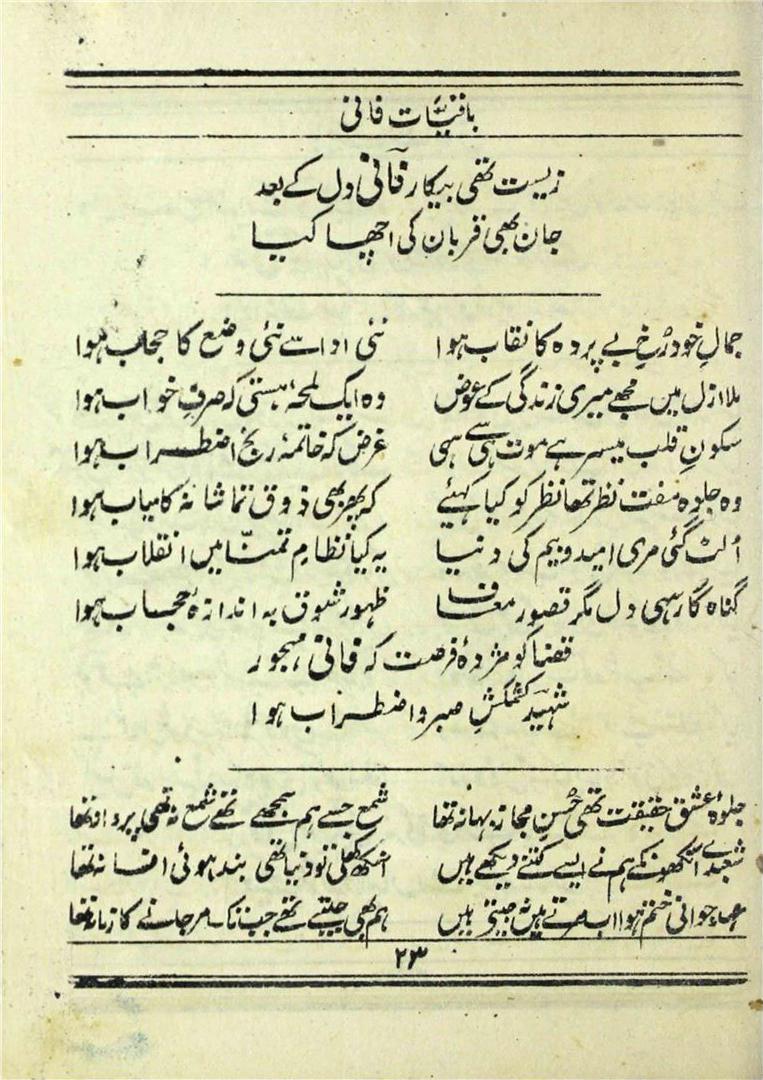 باقیات فانی
زیست تھی بیکار فانی دل کے بعد
جان بھی قربان کی اچھا کیا
جمالِ خود رُخِ بے پردہ کا نقاب ہوا نئی ادا سے نئی وضع کا حجاب ہوا
ملا ازل میں مجھے میری زندگی کے عوض وہ ایک لمحۂ ہستی کہ صرفِ خواب ہوا
سکونِ قلب میسر ہے موت ہی سے سہی غرض کہ خاتمۂ رنج اضطراب ہوا
وہ جلوہ مفت نظر تھا نظر کو کیا کہئیے کہ پھر بھی ذوق تماشا نہ کامیاب ہوا
اُلٹ گئی مری امید و بیم کی دنیا یہ کیا نظامِ تمنّا میں انقلاب ہوا
گناہ گار سہی دل مگر قصور معاف ظہور شوق بہ اندازۂ حجاب ہوا
قضا کو مژدۂ فرصت کہ فانی مہجور
شہید کشمکشِ صبر و اضطراب ہوا
جلوۂ عشق حقیقت تھی حُسنِ مجاز بہانہ تھا شمع جسے ہم سمجھے تھے شمع نہ تھی پروانہ تھا
شعبدے آنکھوں کے ہم نے ایسے کتنے دیکھے ہیں آنکھ کھلی تو دنیا تھی بند ہوئی افسانہ تھا
عہد جوانی ختم ہوا اب مرتے ہیں نہ جیتے ہیں ہم بھی جیتے تھے جب تک مر جانے کا زمانہ تھا
۲۳